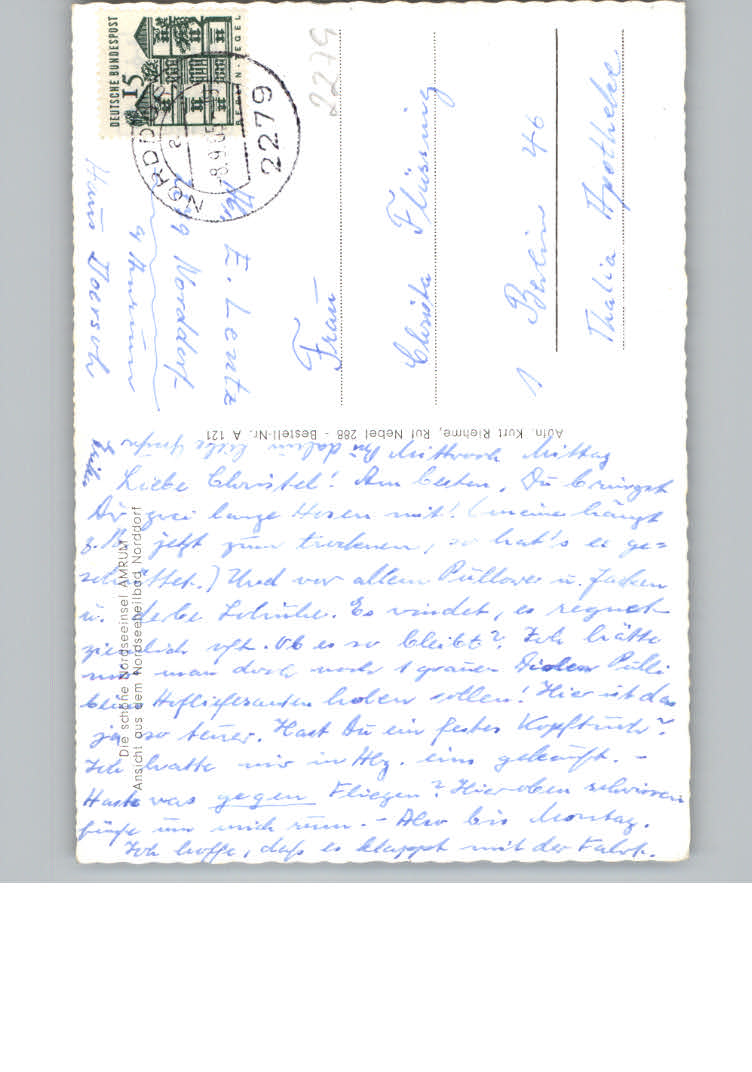 DEUTSCHE BUNDESPOST
15
BERLIN-TEGEL
NORDDORF
-8.9.65
2279
2279
Abs. E. Lentz
Norddorf
a/ Amrum
Haus Doersch
Frau
Christa Flüssing
1 Berlin 46
Thalia Apotheke
Aufn. Kurt Riehme, Ruf Nebel 288 - Bestell-Nr. A 121
Die schöne Nordseeinsel AMRUM
Ansicht aus dem Nordseeheilbad Norddorf
Mittwoch Mittag
Liebe Christel! Am besten, Du bringst
Dir zwei lange Hosen mit! (meine hängt
z.B. jetzt zum trocknen, so hat's es ge=
schüttet.) Und vor allem Pullover u. Jacken
u. derbe Schuhe. Es windet, es regnet
ziemlich oft. Ob es so bleibt? Ich hätte
mir man doch noch 1 grauen Pulli
beim Hoflieferanten holen sollen! Hier ist das
ja so teuer. Hast Du ein festes Kopftuch?
Ich hatte mir in Hbg. eins gekauft. -
Haste was gegen Fliegen? Hier oben schwirren
fünfe um mich rum. - Also bis Montag.
Ich hoffe, daß es klappt mit der Fahrt.
Bis dahin liebe Grüße